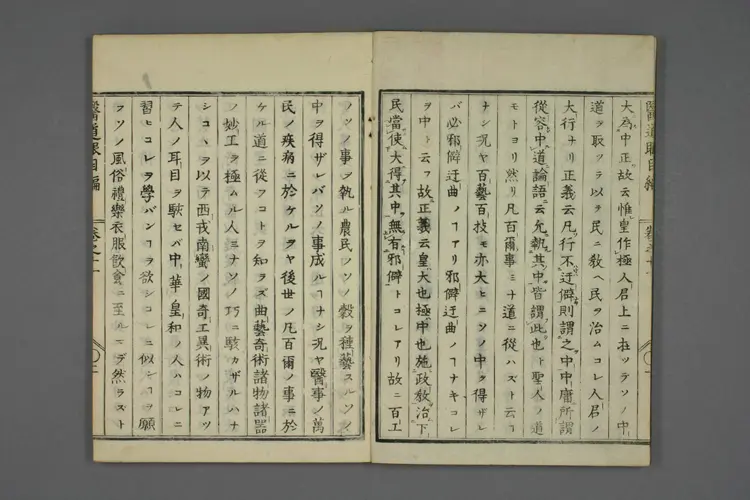 大為中正故云惟皇作極人君上ニ在ッテソノ中
道ヲ取ッテ以ヲ民ニ教ヘ民ヲ治ムコレ人君ノ
大行ナリ正義云凡行不迂僻則謂之中中庸所謂
從容中道論語云允執其中皆謂此也ト聖人ノ道
モトヨリ然リ凡百爾事ミナ道ニ從ハズト云ヿ
ナシ況ヤ百藝百技モ亦大ヒニソノ中ヲ得ザレ
バ必邪僻迂曲ノヿアリ邪僻迂曲ノヿナキコレ
ヲ中ト云フ故正義云皇大也極中也施政教治下
民當使大得其中無有邪僻トコレアリ故ニ百工
ノソノ事ヲ執ル農民ノソノ穀ヲ種藝スルソノ
中ヲ得ザレバソノ事成ルヿナシ況ヤ醫事ノ萬
民ノ疾病ニ於ケルヲヤ後世ノ凡百爾ノ事ニ於
ケル道ニ從フコトヲ知ラズ曲藝奇術諸物諸器
ノ妙工ヲ極ムル人ミナソノ巧ニ駭カザルハナ
シコヽヲ以テ西戎南蠻ノ國奇工異術ノ物アツ
テ人ノ耳目ヲ駭セバ中華皇和ノ人ハコレニ
習ヒコレヲ學バンヿヲ欲シコレニ似ンヿヲ願
フソノ風俗禮樂衣服飲食ニ至ルマデ然ラスト
醫道眼目編
卷之十